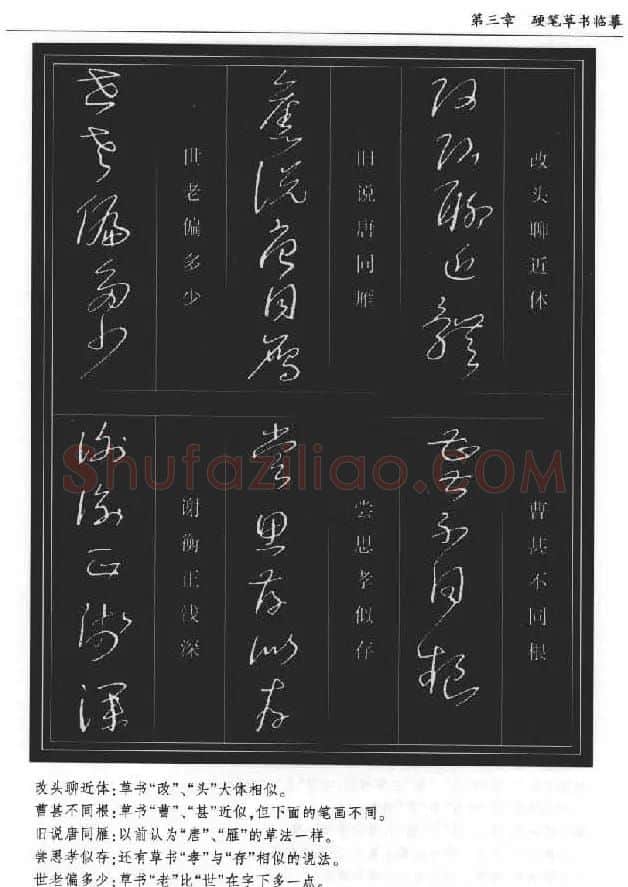 第三章 硬笔草书临摹
改头聊近体
曹甚不同根
旧说唐同雁
尝思孝似存
世老偏多少
谢衡正浅深
Shufaziliao.COM
改头聊近体:草书“改”、“头”大体相似。
曹甚不同根:草书“曹”、“甚”近似,但下面的笔画不同。
旧说唐同雁:以前认为“唐”、“雁”的草法一样。
尝思孝似存:还有草书“孝”与“存”相似的说法。
世老偏多少:草书“老”比“世”在字下多一点。